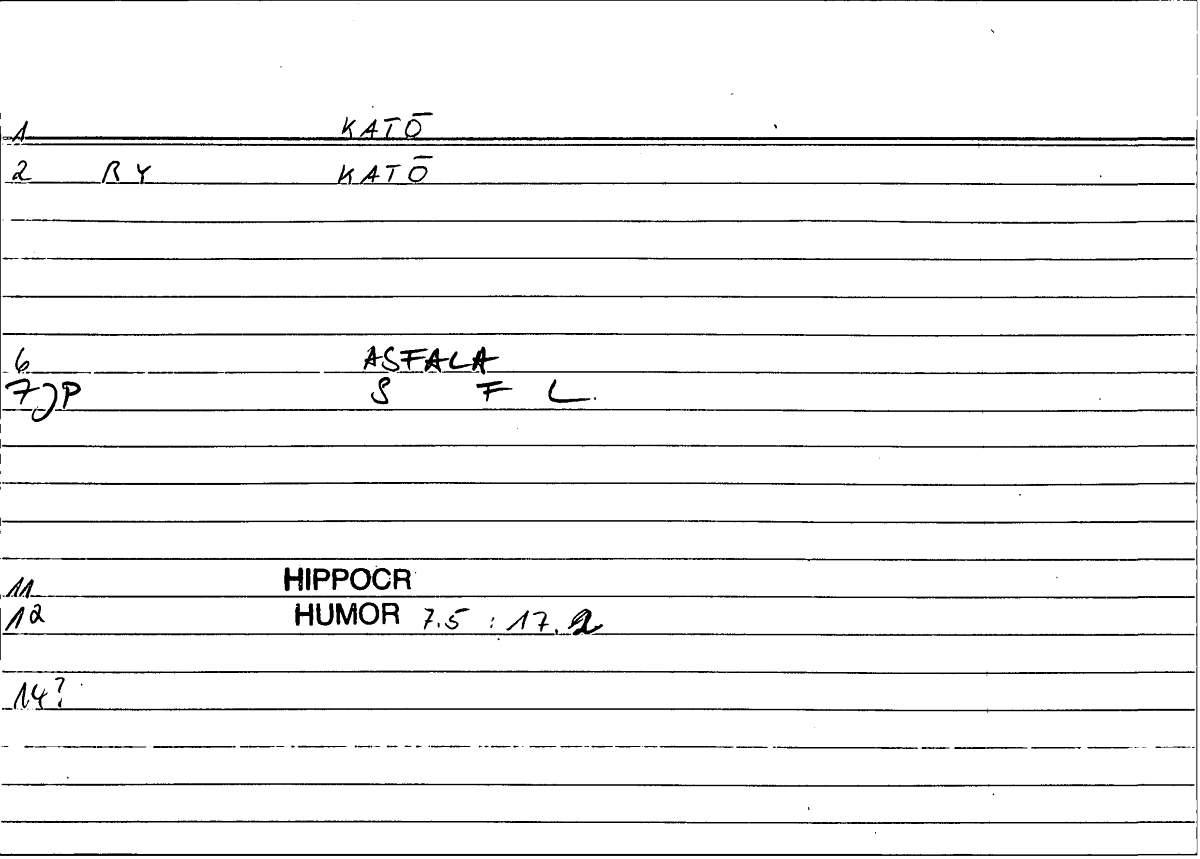 1 KATŌ
2 RY KATŌ
6 ASFALA
7 JP S F L.
11 HIPPOCR
12 HUMOR 7.5 : 17.2
14?